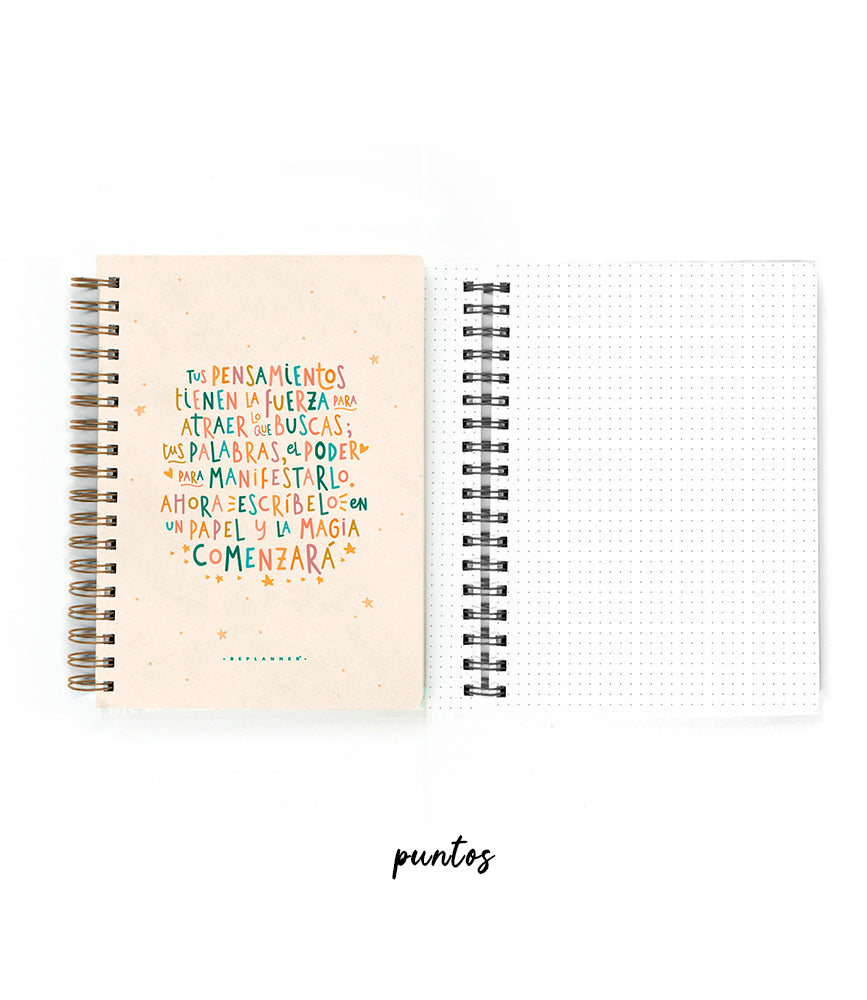 TUS PENSAMIENTOS
TIENEN LA FUERZA PARA
ATRAER LO QUE BUSCAS;
TUS PALABRAS, EL PODER
PARA MANIFESTARLO.
AHORA ESCRÍBELO EN
UN PAPEL Y LA MAGIA
COMENZARÁ
·BEPLANNER·
puntos